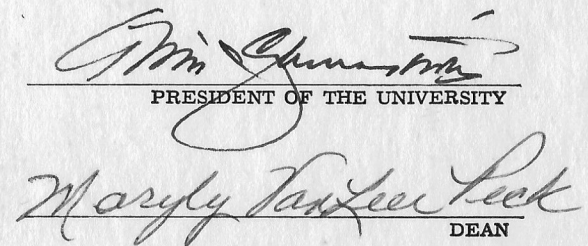 PRESIDENT OF THE UNIVERSITY
Maryly VanLeer Peck
DEAN